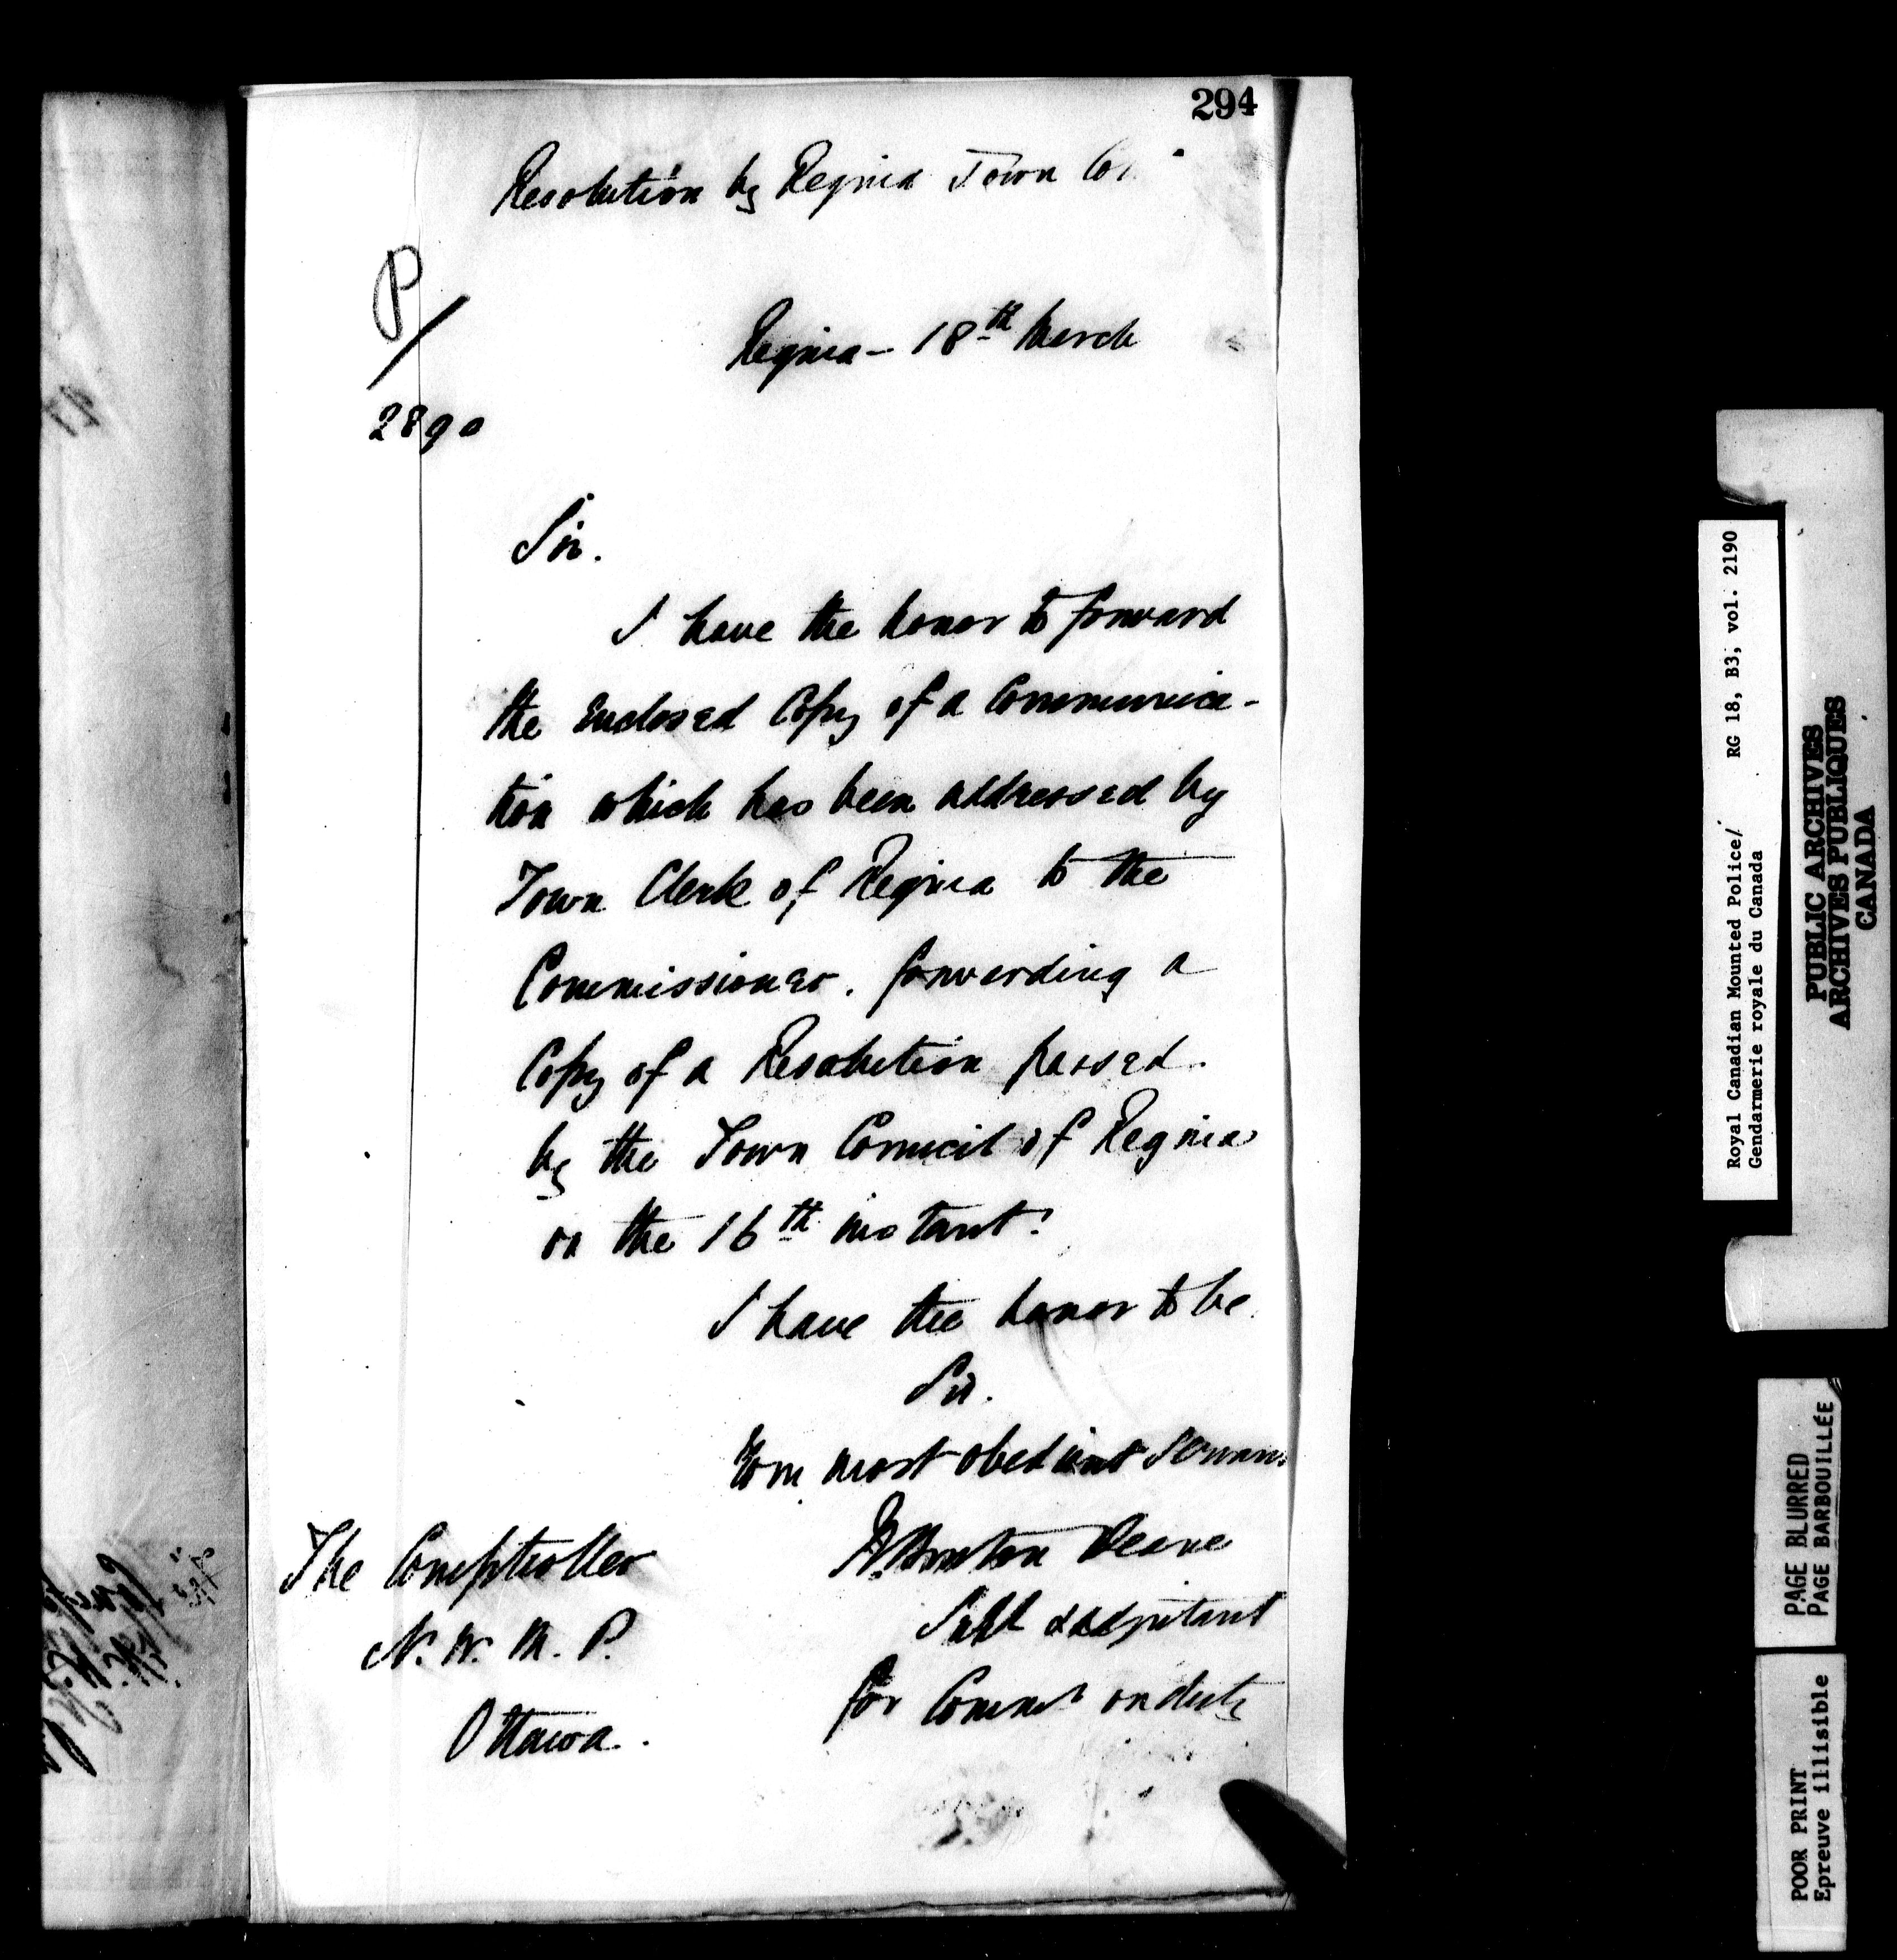 294
Resolution by Regina Town
P/
2890
Regina - 18th March
Sir.
I have the honor to forward
the enclosed Copy of a Communica-
tion which has been addressed by
Town Clerk of Regina to the
Commissioner. forwarding a
Copy of a Resolution passed
by the Town Council of Regina
on the 16th instant.
I have the honor to be
Sir.
Your most obedient Servant
R Burton Deane
Supt & adjutant
for Commr on duty
The Comptroller
N. W. M. P.
Ottawa.
Royal Canadian Mounted Police/ RG 18, B3, vol. 2190
Gendarmerie royale du Canada
PUBLIC ARCHIVES
ARCHIVES PUBLIQUES
CANADA
PAGE BLURRED
PAGE BARBOUILLÉE
POOR PRINT
Epreuve illisible